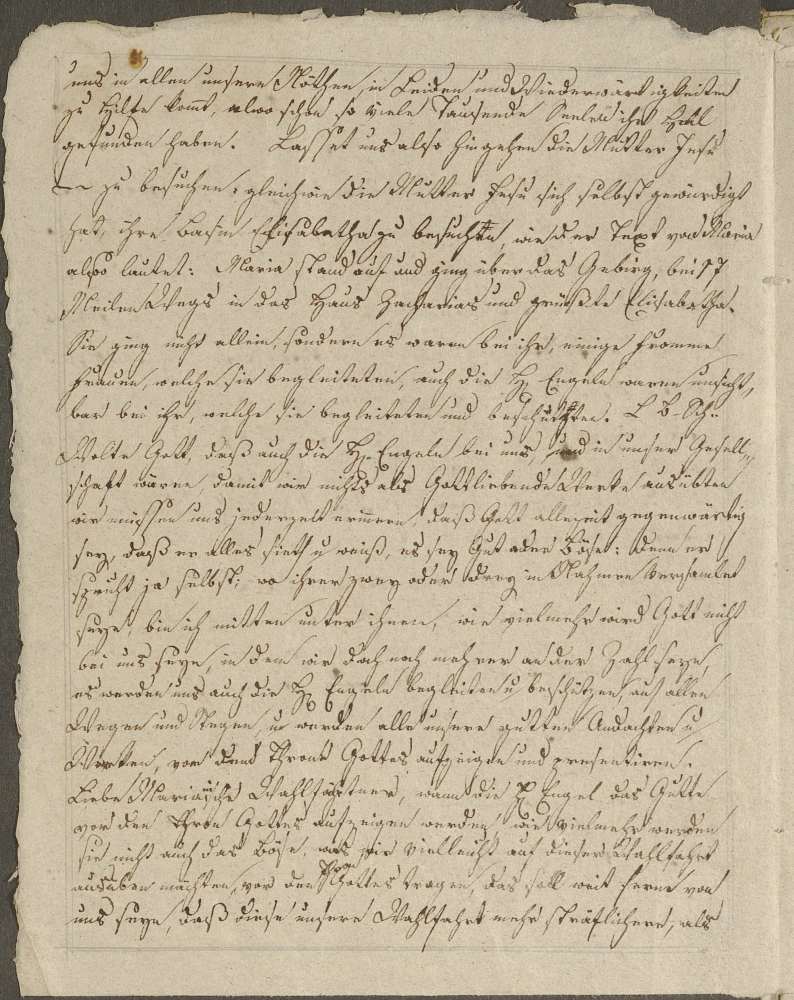 uns in allen unsern Nöthen, in Leiden und Wiederwärtigkeiten
zu Hilfe komt, alwo schon so viele Tausende Seelen ihr Heil
gefunden haben. Lasset uns also hingehen die Mutter Jesu
zu besuchen, gleichwie die Mutter Jesu sich selbst gewürdigt
hat, ihre Basin Elisabetha zu besuchen, wie der Text von Maria
also lautet: Maria stand auf und ging über das Gebirg, bei 17
Meilen Wegs in das Haus Zacharias und grüßte Elisabetha.
Sie ging nicht allein, sondern es waren bei ihr, einige fromme
Frauen, welche sie begleiteten, auch die H. Engeln waren unsicht,
bar bei ihr, welche sie begleiteten und beschützten. L B. Sch..
Wolte Gott, daß auch die H. Engeln bei uns, und in unser Gesell-
schaft wären, damit wir nichts als Gottliebende Werke ausübten
wir müssen uns jederzeit erinnern, daß Gott allezeit gegenwärtig
sey, daß er alles sieht u weiß, es sey Gut oder Böse: denn er
spricht ja selbst; wo ihrer zwey oder drey in Nahmen versamlet
seye, bin ich mitten unter ihnen, wie vielmehr wird Gott nicht
bei uns seye, in dem wir doch noch mehrer an der Zahl seye,
es werden uns auch die H. Engeln begleiten u beschützen, auf allen
Wegen und Stegen, u werden alle unsere gutten Andachten u
Werken, vor dem Throne Gottes aufzeigen und presentiren.
Liebe Marianische Wahlfartner, wann die H. Engel das Gutte
vor den Thron Gottes aufzeigen werden, wie vielmehr werden
sie nicht auch das Böse, was wir vielleicht auf dieser Wahlfahrt
ausüben möchten, vor den Thron Gottes tragen, das soll weit ferne von
uns seye, daß diese unsere Wahlfahrt mehr sträflichere, als